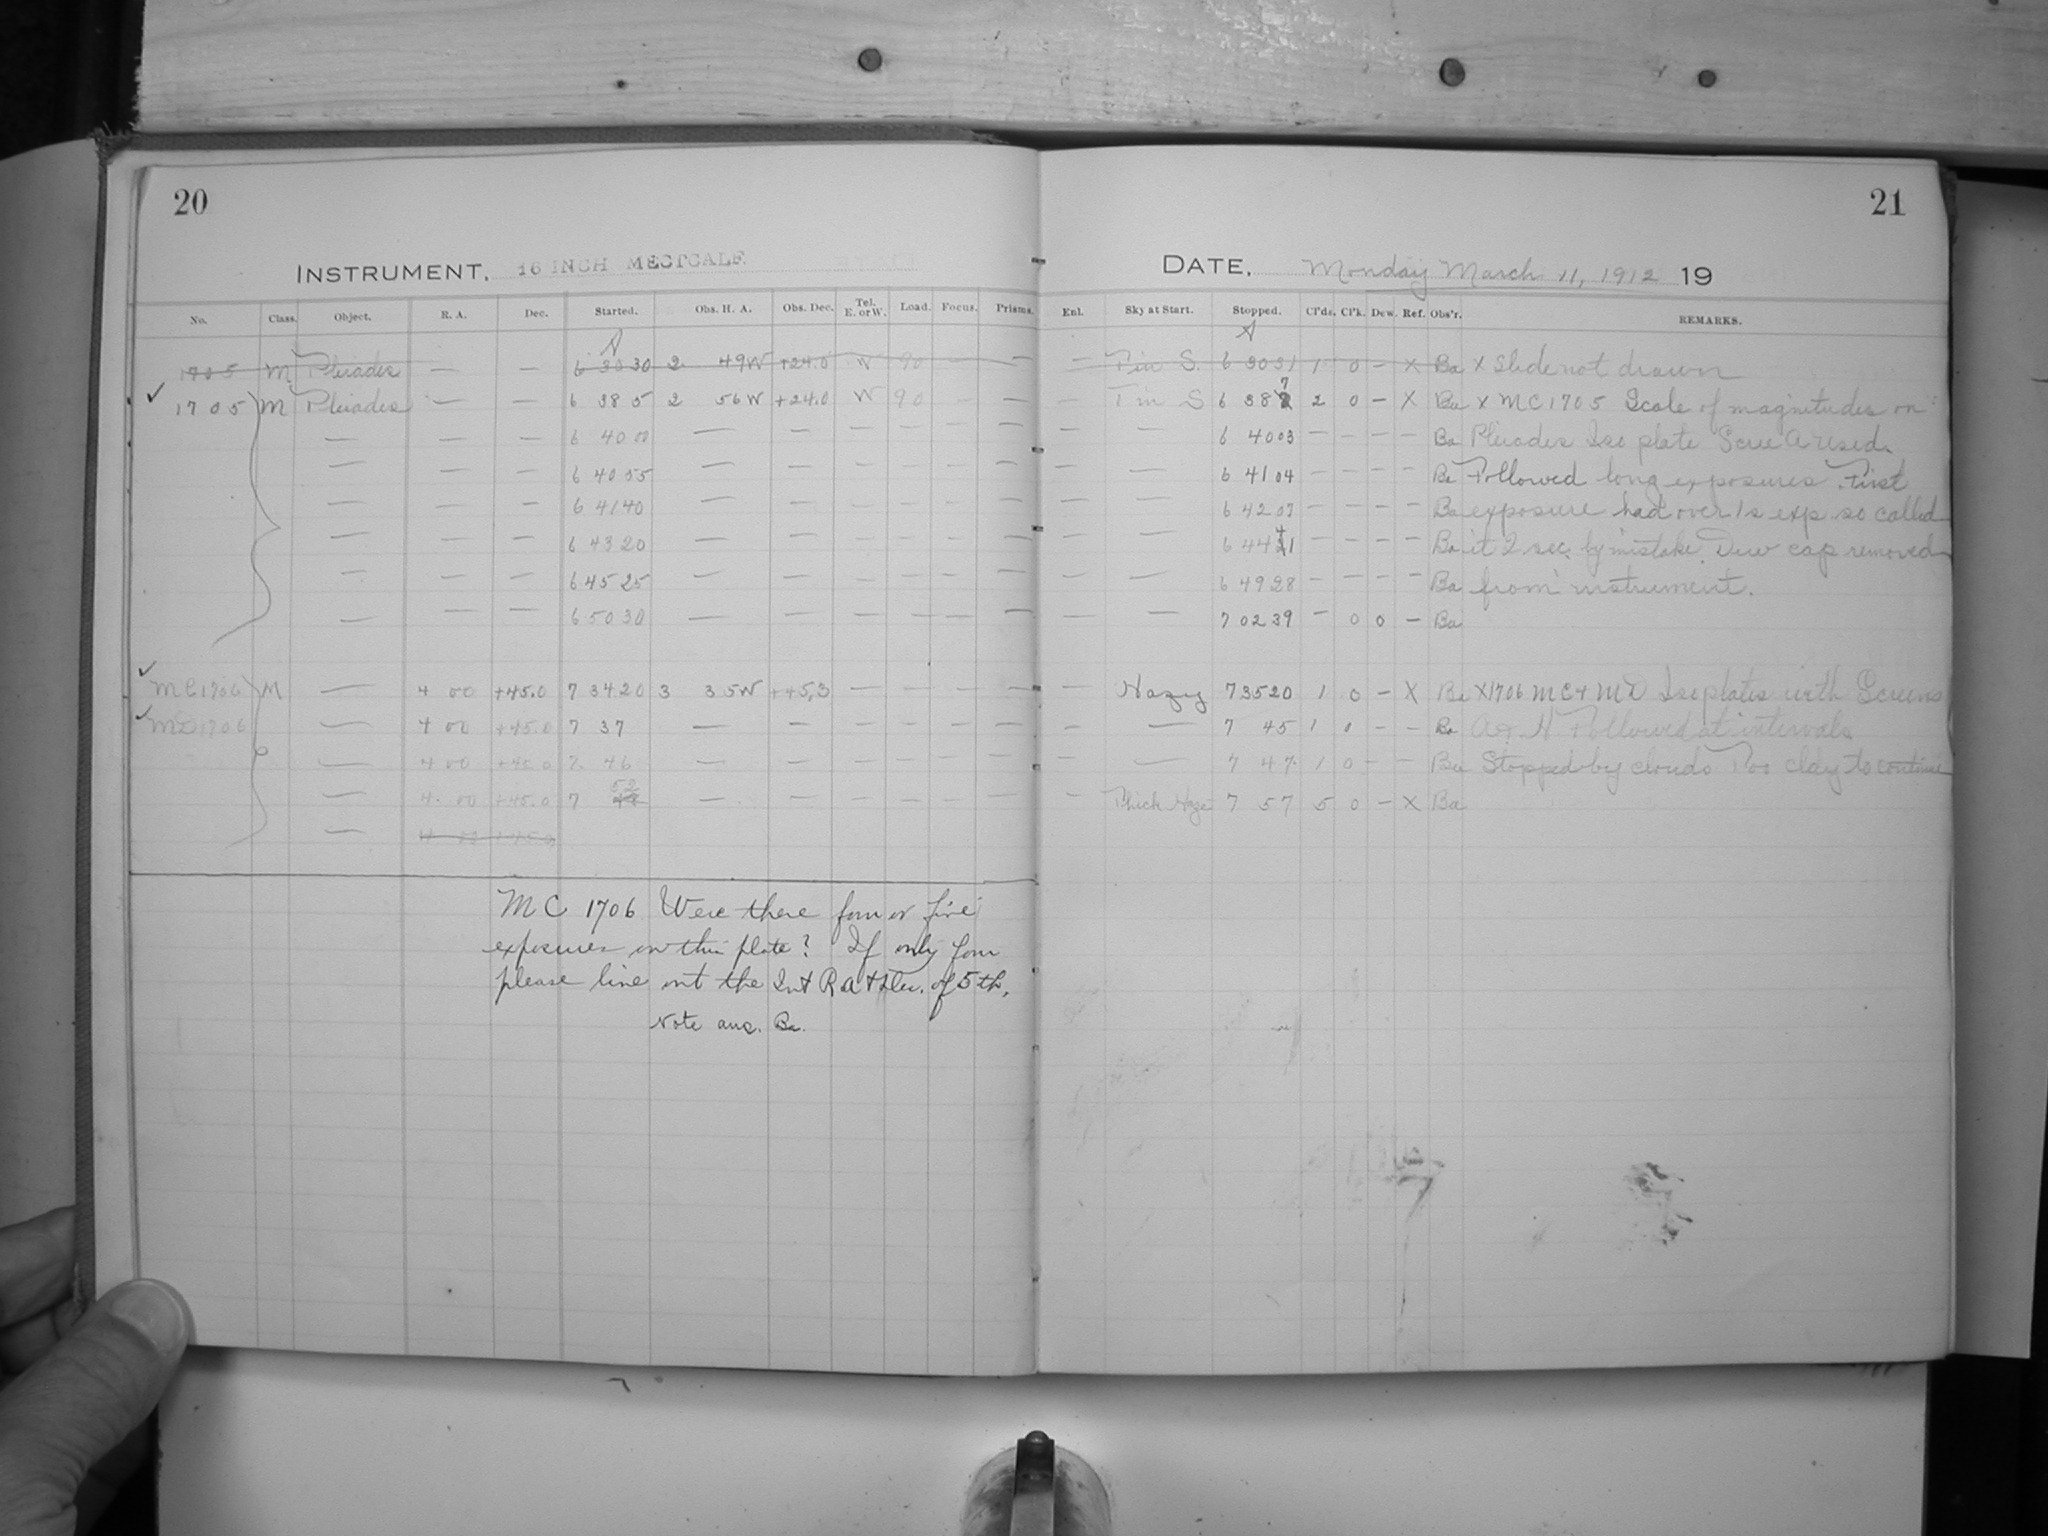 20
21
INSTRUMENT, 16 INCH METCALF
DATE, Monday March 11, 1912 19
No. Class. Object. R. A. Dec. Started. Obs. H. A. Obs. Dec. Tel. E. or W. Load. Focus. Prisms. Enl. Sky at Start. Stopped. Cl'ds. Cl'k. Dew. Ref. Obs'r. REMARKS.
A A
1705 M Pleiades — — 6 30 30 2 49W +24.0 W 90 — — — Fin S. 6 30 31 1 0 — X Ba X Slide not drawn
✓ 1705 M Pleiades — — 6 38 5 2 56W +24.0 W 90 — — — Fin S 6 38 7 2 0 — X Ba X MC1705 Scale of magnitudes on
— — — 6 40 00 — — — — — — — — 6 40 03 — — — — Ba Pleiades Iso plate Scree A used.
— — — 6 40 55 — — — — — — — — 6 41 04 — — — — Ba Followed long exposures. First
— — — 6 41 40 — — — — — — — — 6 42 07 — — — — Ba exposure had over 1s exp so called
— — — 6 43 20 — — — — — — — — 6 44 41 — — — — Ba it 2 sec. by mistake. Dew cap removed
— — — 6 45 25 — — — — — — — — 6 49 28 — — — — Ba from instrument.
— — — 6 50 30 — — — — — — — — 7 02 39 — 0 0 — Ba
✓ MC1706 M — 4 00 +45.0 7 34 20 3 35W +45,3 — — — — — Hazy 7 35 20 1 0 — X Ba X1706 MC + MD Iso plates with Screens
✓ MD1706 — 4 00 +45.0 7 37 — — — — — — — — 7 45 1 0 — — Ba A + H Followed at intervals
— 4 00 +45.0 7. 46 — — — — — — — — 7 47 1 0 — — Ba Stopped by clouds Too cldy to continue
— 4. 00 +45.0 7 52 — — — — — — — Thick Haze 7 57 5 0 — X Ba
— 4 00 +45.0
MC 1706 Were there four or five
exposures on this plate? If only four
please line out the Int RA + Dec. of 5th.
Note ans. Ba.